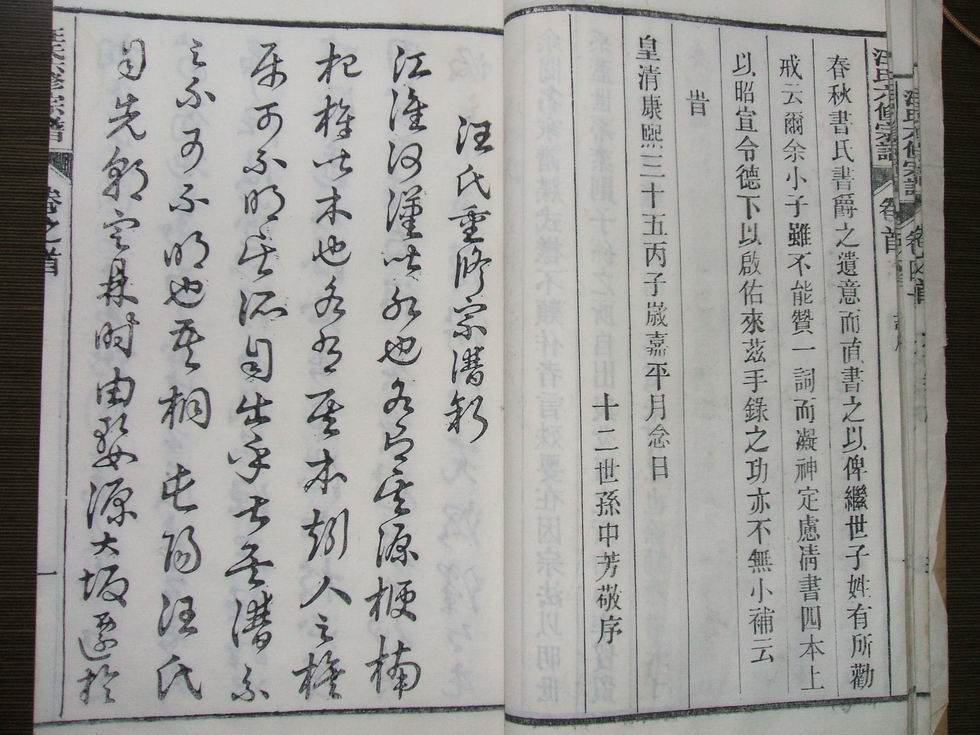 汪氏六修宗譜 卷首
春秋書氏書爵之遺意而直書之以俾繼世子姓有所勸
戒云爾余小子雖不能贊一詞而凝神定慮淸書四本上
以昭宣令德下以啟佑來茲手錄之功亦不無小補云
旹
皇清康熙三十五丙子歲嘉平月念日
十二世孫中芳敬序
汪氏重修宗譜敘
江淮河漢皆水也各有其源梗楠
杞梓皆木也各有其本矧人之族
可不明其所自出乎
之不可不明也桐陽汪氏
自先朝時由婺源大坂遷於
卷之首
一